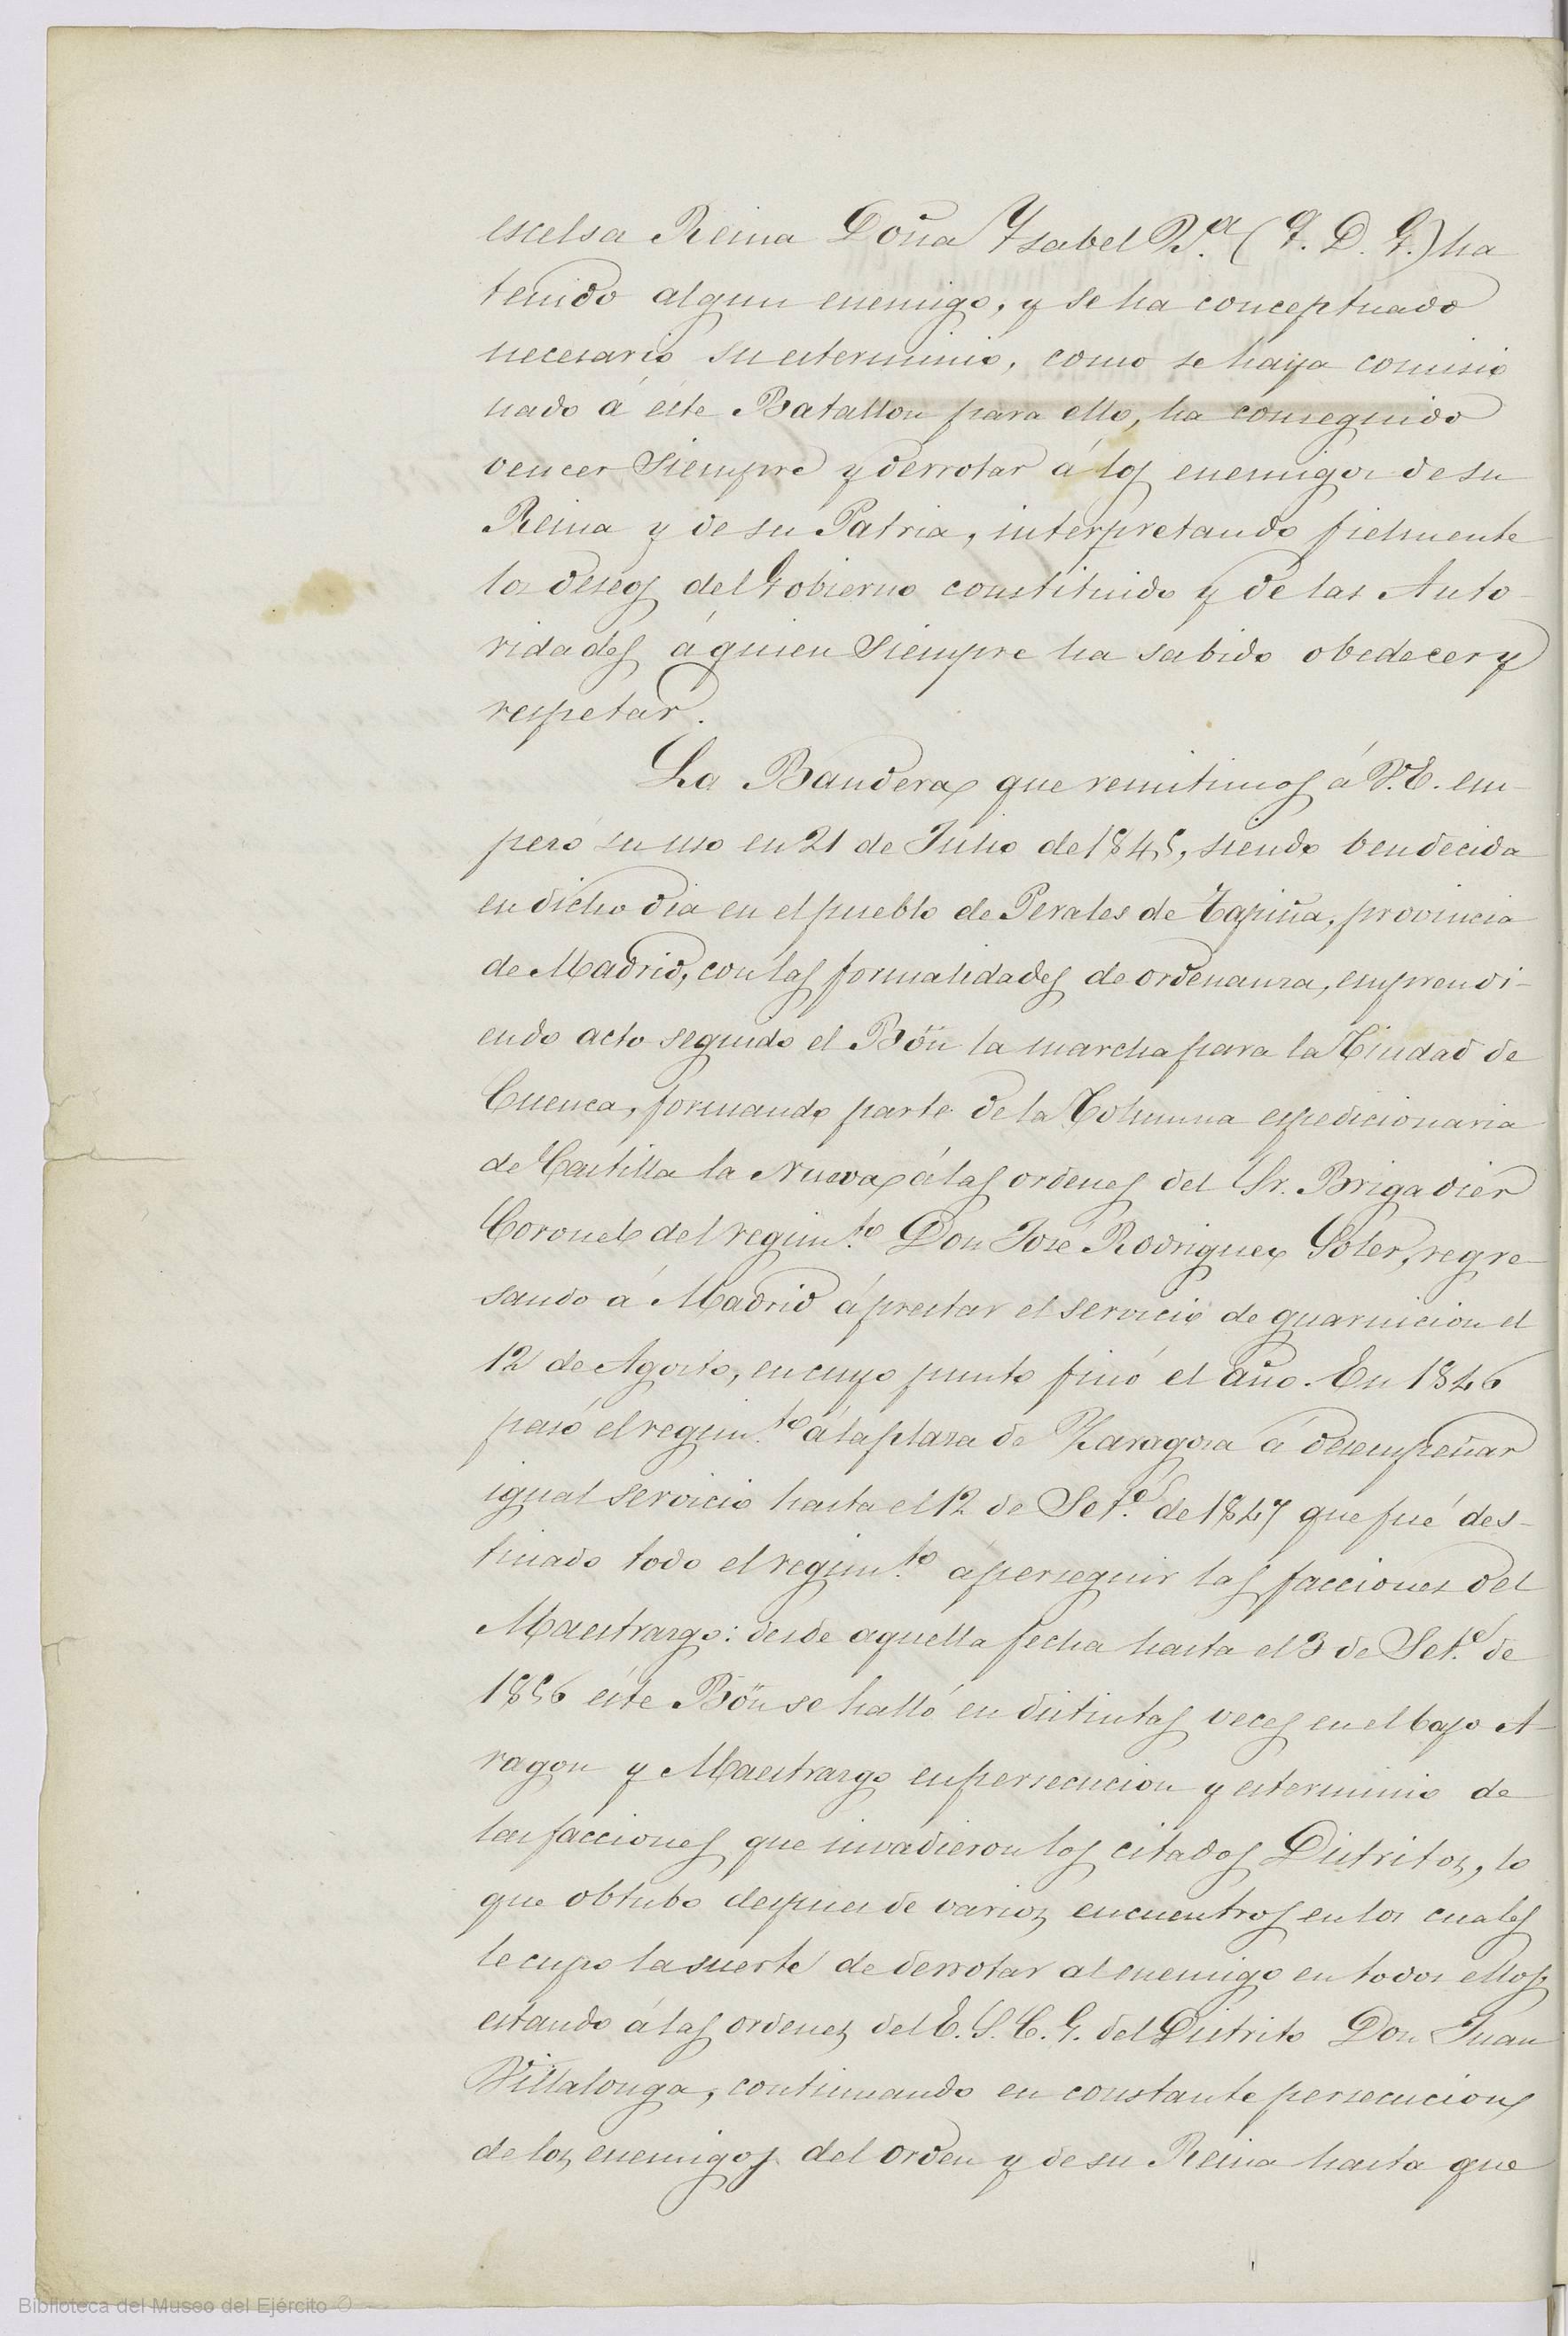 escelsa Reina Doña Ysabel 2.ª (Q. D. G.) ha
tenido algun enemigo, y se ha conceptuado
necesario su esterminio, como se haya comisio
nado á éste Batallon para ello, ha conseguido
vencer siempre y derrotar á los enemigos de su
Reina y de su Patria, interpretando fielmente
los deseos del Gobierno constituido y de las Auto-
ridades á quien siempre ha sabido obedecer y
respetar.
La Bandera que remitimos á V.E. em-
pezó su uso en 21 de Julio de 1845, siendo bendecida
en dicho dia en el pueblo de Perales de Tajuña, provincia
de Madrid, con las formalidades de ordenanza, emprendi-
endo acto seguido el Bön la marcha para la Ciudad de
Cuenca, formando parte de la Columna espedicionaria
de Castilla la Nueva á las ordenes del Sr. Brigadier
Coronel del regim.to Don José Rodriguez Soler, regre-
sando á Madrid á prestar el servicio de guarnicion el
12 de Agosto, en cuyo punto finó el año. En 1846
pasó el regim.to á la plaza de Zaragoza á desempeñar
igual servicio hasta el 12 de Set.e de 1847 que fué des-
tinado todo el regim.to á perseguir las facciones del
Maestrazgo: desde aquella fecha hasta el 3 de Set.e de
1856 éste Bön se halló en distintas veces en el bajo A-
ragon y Maestrazgo en persecucion y esterminio de
las facciones que invadieron los citados Distritos, lo
que obtubo despues de varios encuentros en los cuales
le cupo la suerte de derrotar al enemigo en todos ellos
estando á las ordenes del E. S. C. G. del Distrito Don Juan
Villalonga, continuando en constante persecucion
de los enemigos del orden y de su Reina hasta que
Biblioteca del Museo del Ejército